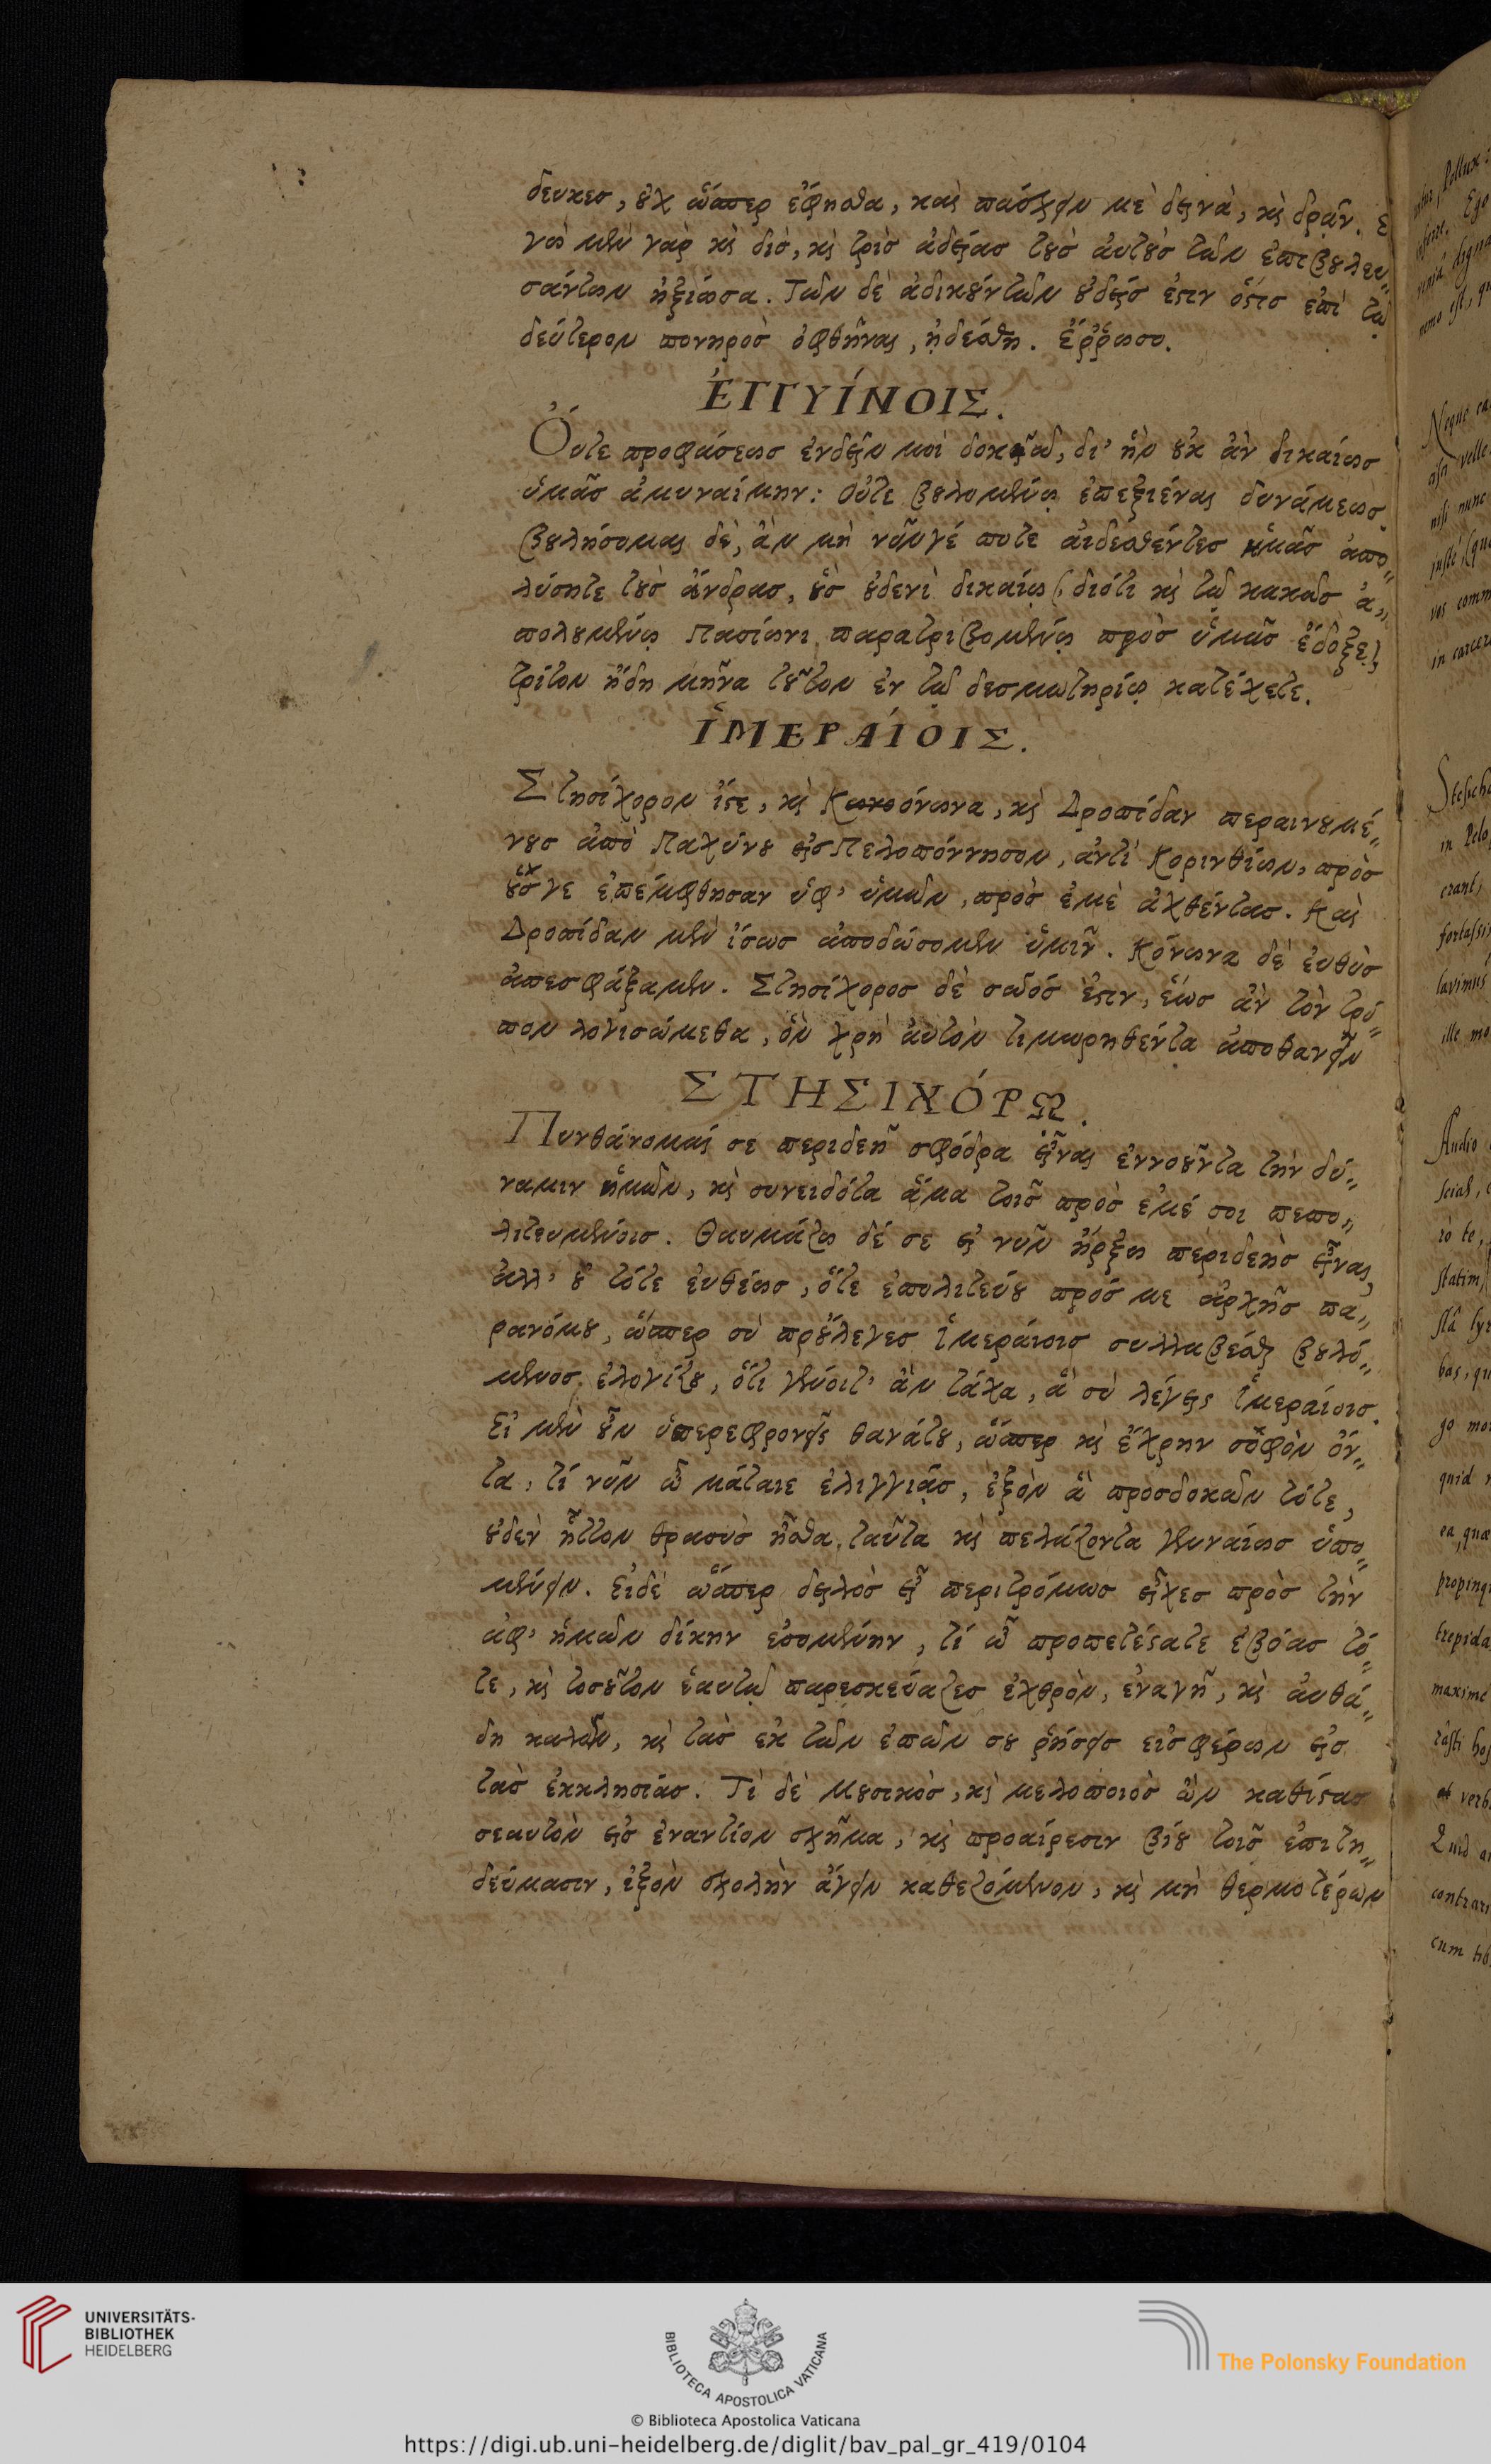 δευκεσ, οὐχ ὥσπερ ἔφησθα, καὶ πάσχειν με δεινὰ, καὶ δρᾷν. ἐ
γὼ μὲν γὰρ καὶ δὶσ, καὶ τρὶσ ἀδείασ τοὺσ αὐτοὺσ τῶν ἐπιβουλευ„
σάντων ἠξίωσα. Τῶν δὲ ἀδικούντων οὐδείσ ἐστιν ὅστισ ἐπὶ τῷ
δεύτερον πονηροσ ὀφθῆναι, ᾐδέσθη. ἔῤῥωσο.
ἘΓΓΥΊΝΟΙΣ.
Οὔτε προφάσεωσ ἐνδεῖν μοι δοκεῖ, δι' ἣν οὐκ ἂν δικαίωσ
ὑμᾶσ ἀμυναίμην: οὔτε βουλομένῳ ἐπεξιέναι δυνάμεωσ.
βουλήσομαι δὲ, ἂν μὴ νῦν γέ ποτε αἰδεσθέντεσ ἡμᾶσ ἀπο„
λύσητε τοὺσ ἄνδρασ, οὓσ οὐδενὶ δικαίῳ (διότι καὶ τῷ κακῶσ ἀ„
πολουμένῳ Πασίωνι παρατριβομένῳ προσ ὑμᾶσ ἔδοξε)
τρίτον ἤδη μῆνα τοῦτον ἐν τῷ δεσμωτηρίῳ κατέχετε.
ἹΜΕΡΑΊΟΙΣ.
Στησίχορον ἴστε, καὶ Κόνωνα, καὶ Δροπίδαν περαινουμέ„
νουσ ἀπὸ Παχύνου εἰσ Πελοπόννησον, ἀντὶ Κορινθίων, πρὸσ
οὕσ γε ἐπέμφθησαν ὑφ' ὑμῶν, πρὸσ ἐμὲ ἀχθέντασ. Καὶ
Δροπίδαν μὲν ἴσωσ ἀποδώσομεν ὑμῖν. Κόνωνα δὲ εὐθὺσ
ἀπεσφάξαμεν. Στησίχοροσ δὲ σῶόσ ἐστιν, ἕωσ ἂν τὸν τρό„
πον λογισώμεθα, ὃν χρὴ αὐτὸν τιμωρηθέντα ἀποθανεῖν
ΣΤΗΣΙΧΌΡΩ.
Πυνθάνομαί σε περιδεῆ σφόδρα εἶναι ἐννοοῦντα τὴν δύ„
ναμιν ἡμῶν, καὶ συνειδότα ἅμα τοῖσ πρὸσ ἐμέ σοι πεπο„
λιτευμένοισ. Θαυμάζω δέ σε εἰ νῦν ἤρξω περιδεὴσ εἶναι,
ἀλλ' οὐ τότε εὐθέωσ, ὅτε ἐπολιτεύου πρόσ με ἀρχῆσ πα„
ρανόμου, ὥσπερ σὺ προὔλεγεσ ἱμεραίοισ συλλαβέσθαι βουλό„
μενοσ ἐλογίζου, ὅτι γένοιτ' ἂν τάχα, ἃ σὺ λέγεισ ἱμεραίοισ.
Εἰ μὲν οὖν ὑπερεφρονεῖσ θανάτου, ὥσπερ καὶ ἔχρην σοφὸν ὄν„
τα, τί νῦν ὦ μάταιε ἐλιγγιᾷσ, ἐξὸν ἃ προσδοκῶν τότε,
οὐδὲν ἧττον θρασὺσ ἦσθα, ταῦτα καὶ πελάζοντα γενναίωσ ὑπο„
μένειν. Εἰδὲ ὥσπερ δειλὸσ εἶ περιτρόμωσ εἶχεσ πρὸσ τὴν
ἀφ' ἡμῶν δίκην ἐσομένην, τί ὦ προπετέστατε ἐβόασ τό„
τε, καὶ τοσοῦτον ἑαυτῷ παρεσκεύαζεσ ἐχθρὸν, ἐναγῆ, καὶ αὐθά„
δη καλῶν, καὶ τὰσ ἐκ τῶν ἐπῶν σου ῥήσεισ εἰσφέρων εἰσ
τὰσ ἐκκλησίασ. Τὶ δὲ μουσικὸσ, καὶ μελοποιὸσ ὢν καθίστασ
σεαυτὸν εἰσ ἐναντίον σχῆμα, καὶ προαίρεσιν βίου τοῖσ ἐπιτη„
δεύμασιν, ἐξὸν σχολὴν ἄγειν καθεζόμενον, καὶ μὴ θερμοτέρων
UNIVERSITÄTS-
BIBLIOTHEK
HEIDELBERG
BIBLIOTECA APOSTOLICA VATICANA
The Polonsky Foundation
© Biblioteca Apostolica Vaticana
https://digi.ub.uni-heidelberg.de/diglit/bav_pal_gr_419/0104